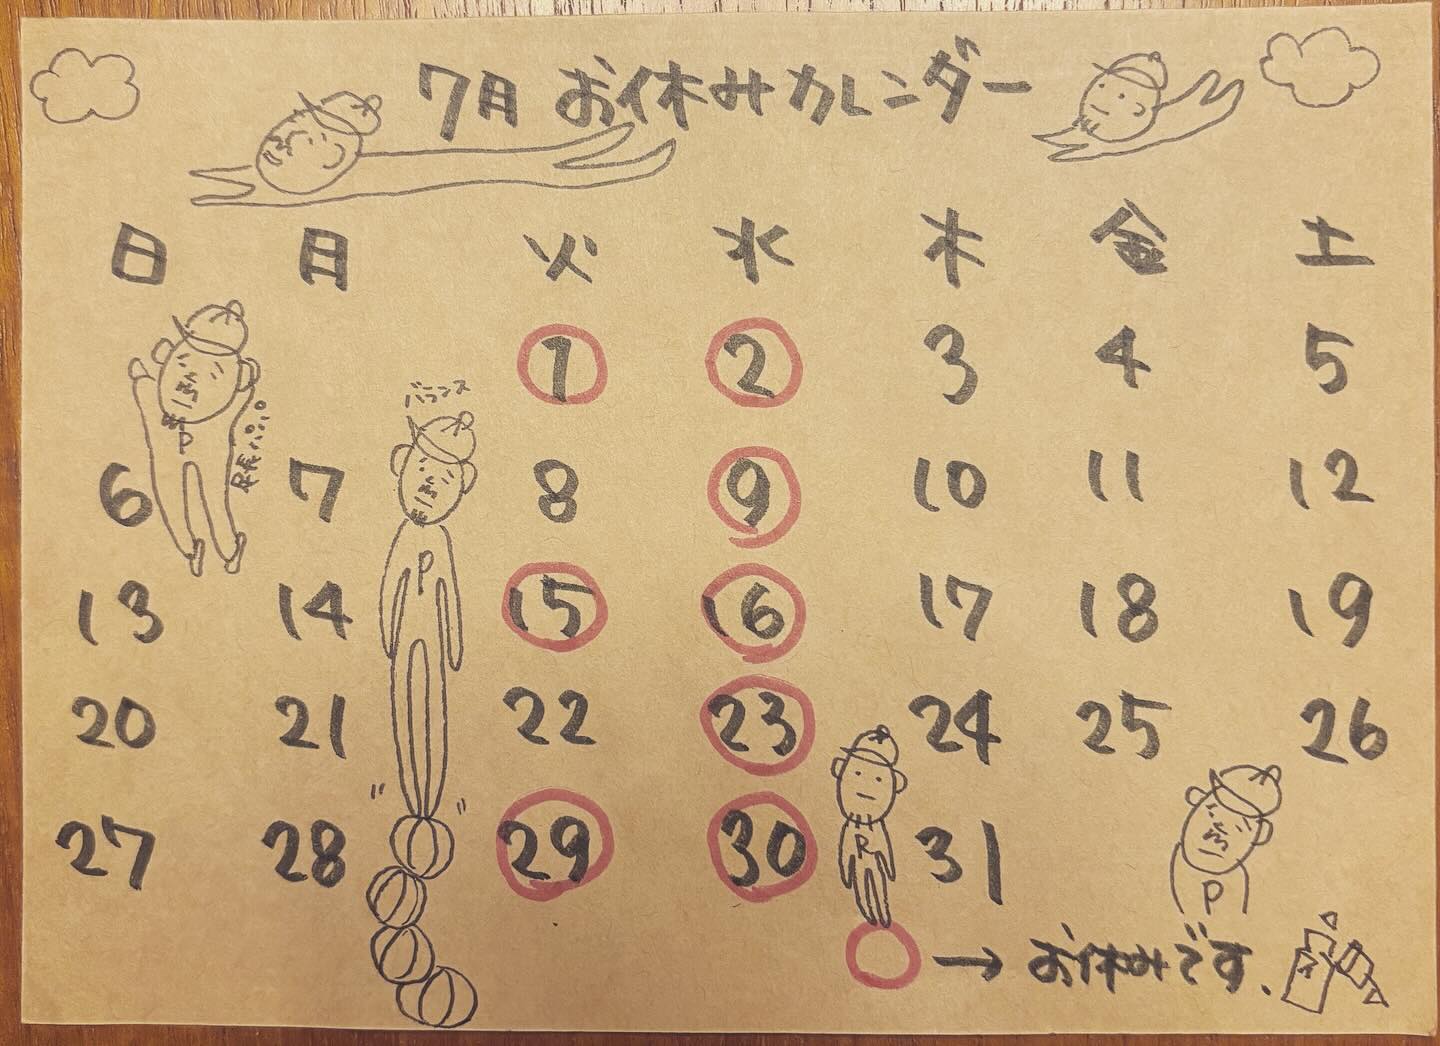 7月 お休みカレンダー
日 月 火 水 木 金 土
1 2 3 4 5
バランス
P
6 7 8 9 10 11 12
P
13 14 15 16 17 18 19
20 21 22 23 24 25 26
27 28 29 30 31
P
P
→ お休みです.